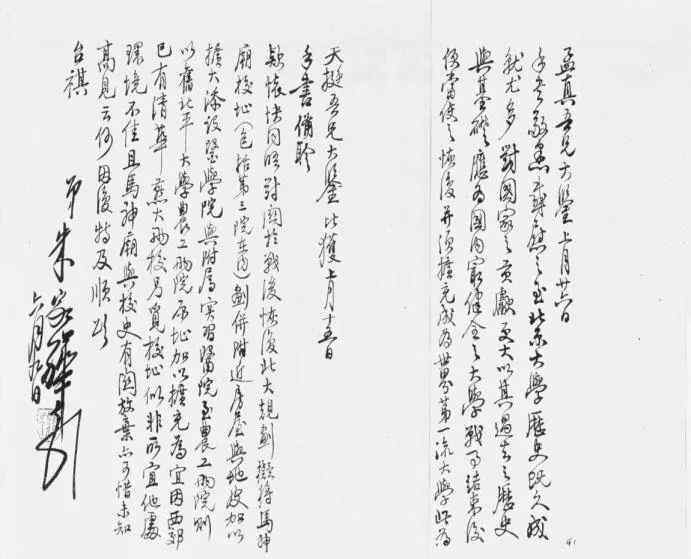 孟真吾兄大鑒上月廿六日
手書敬悉至慰北京大學歷史既久成
就尤多對國家之貢獻更大以其過去之歷史
與基礎應為國內最健全之大學戰事結束後
復當使之恢復并須擴充成為世界第一流大學此為
天挺吾兄大鑒比獲上月十五日
手書備聆
款懷快同晤對關於戰後恢復北大規劃擬將馬神
廟校址(包括第三院在內)劃併附近房屋與地皮加以
擴大添設醫學院與附屬實習醫院至農工兩院則
以舊北平大學農工兩院原址加以擴充為宜因西郊
已有清華燕大兩校另覓校址似非所宜他處
環境不佳且馬神廟與校史有關放棄亦可惜未知
高見云何因復特及順頌
台祺
弟朱家驊
六月九日
41